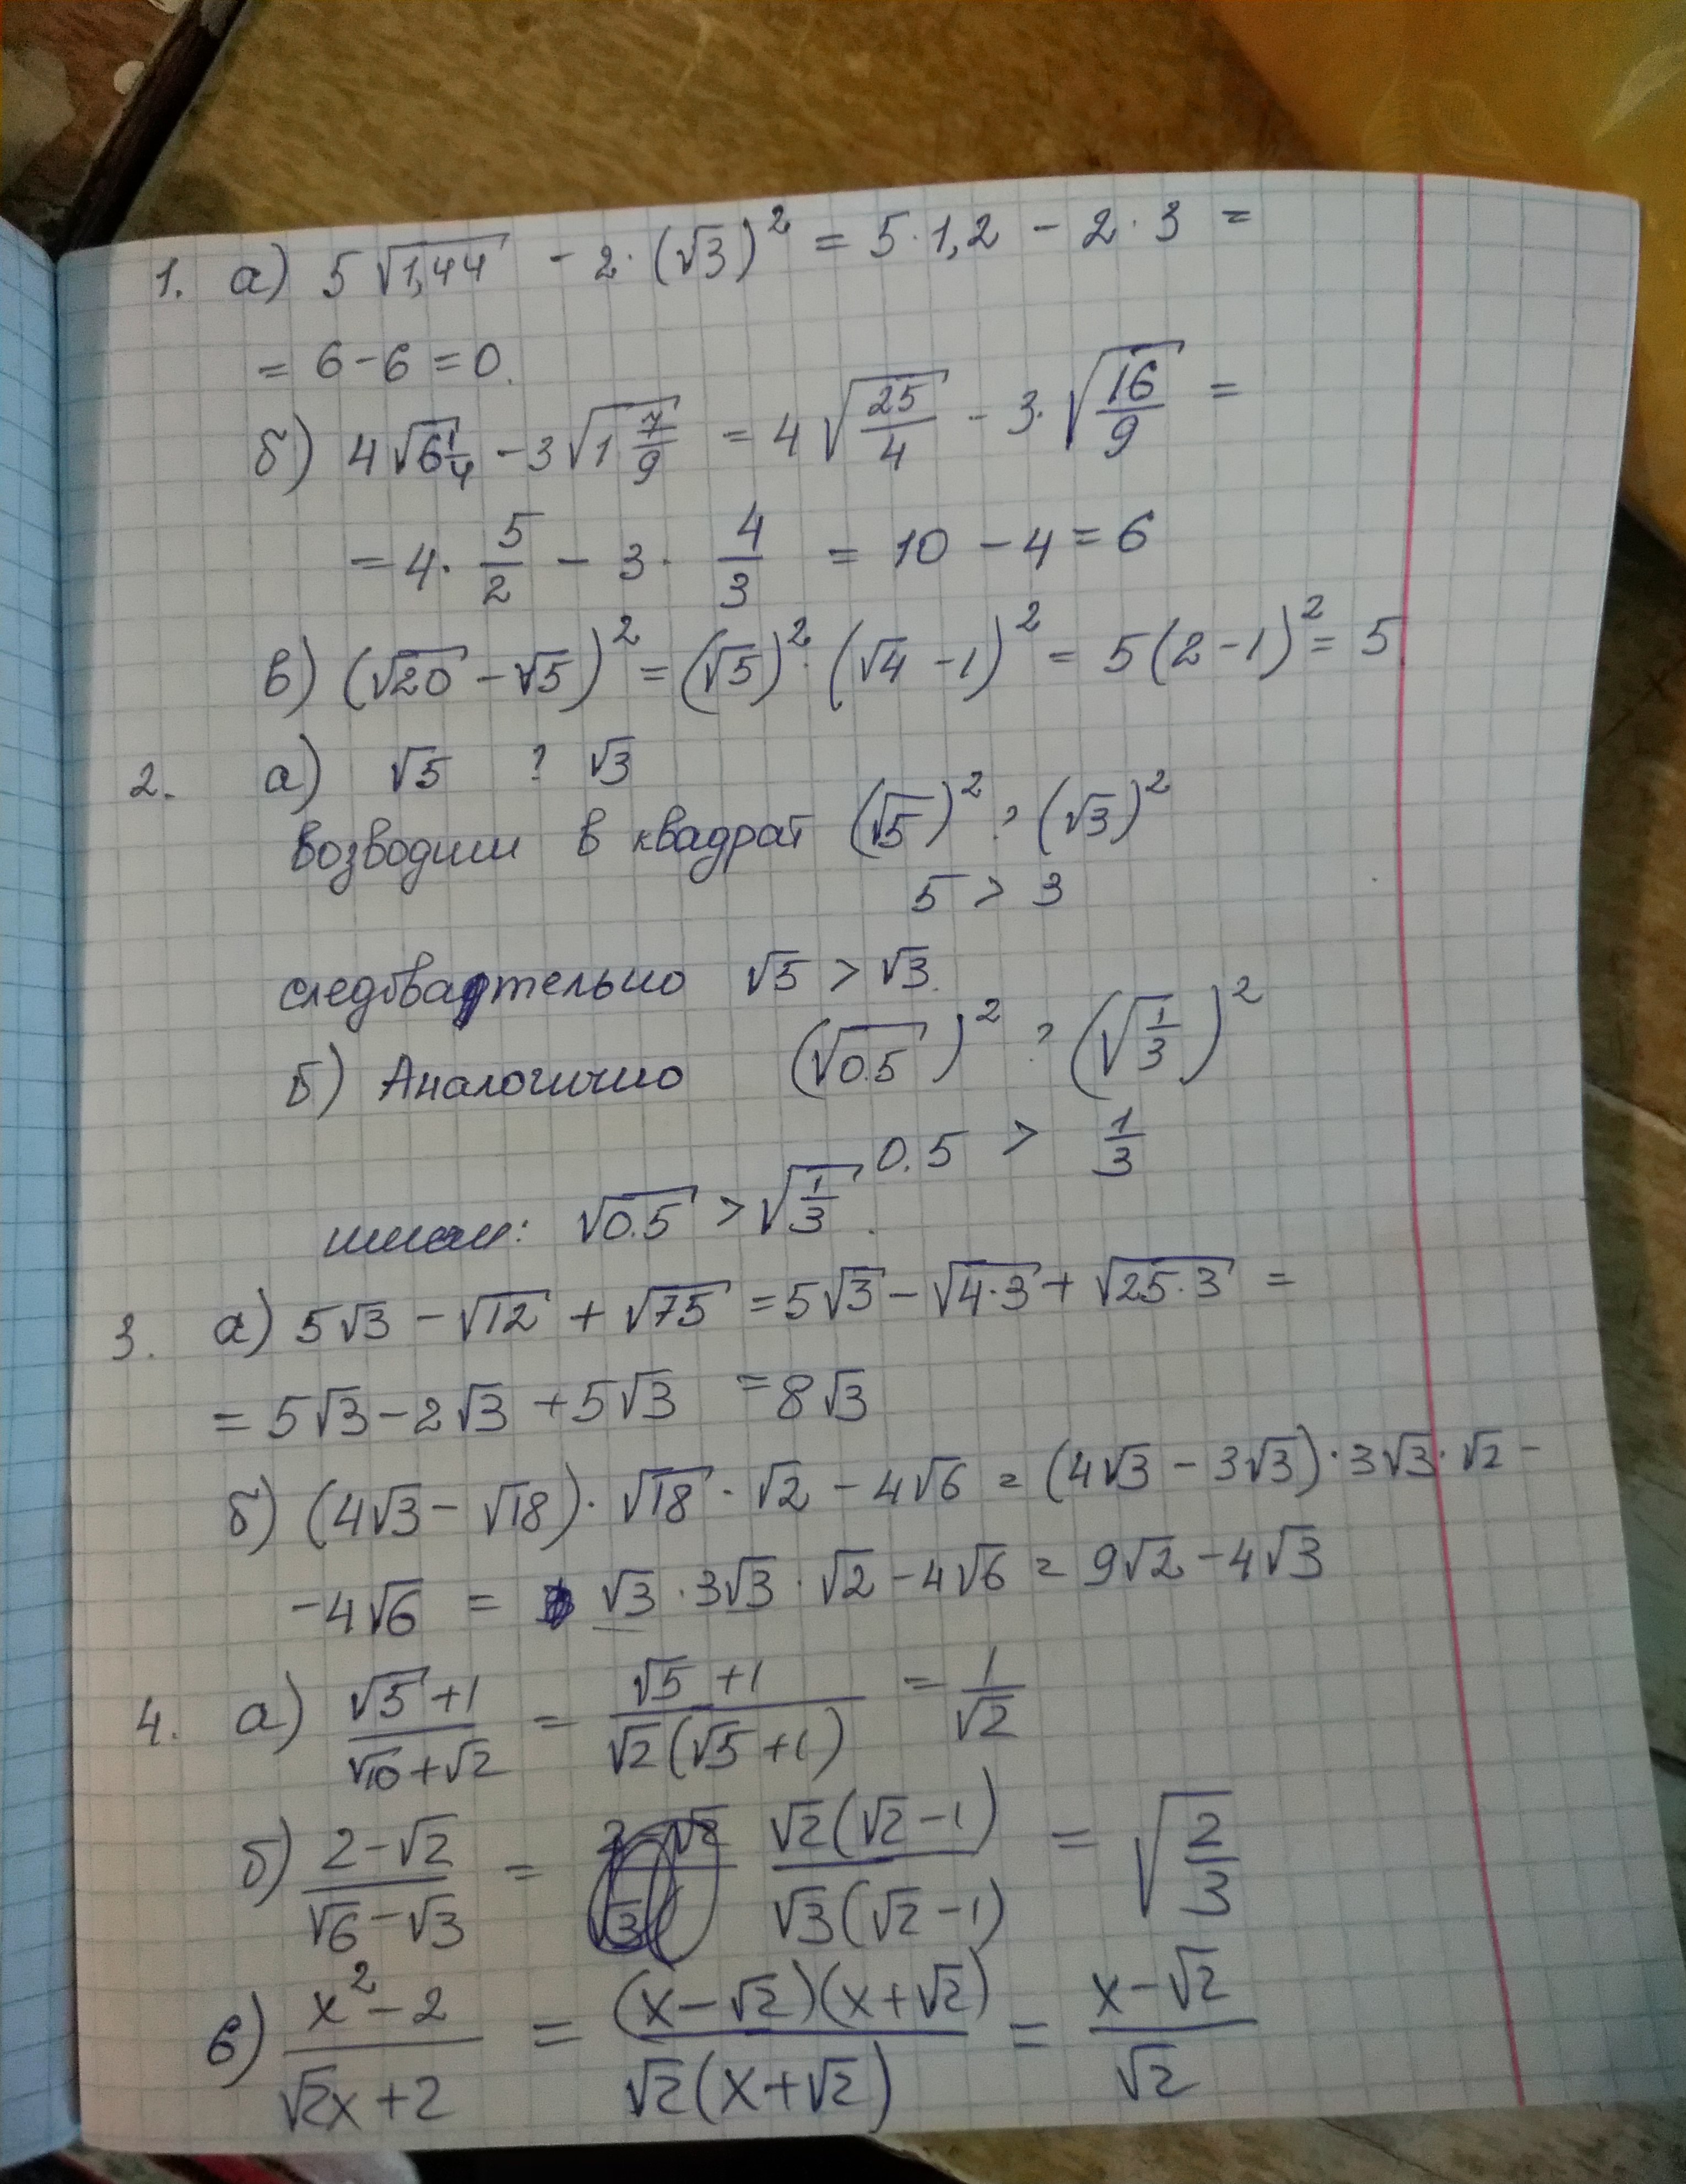 1. а) 5√1,44 - 2·(√3)² = 5·1,2 - 2·3 =
= 6-6 = 0.
б) 4√6 1/4 - 3√1 7/9 = 4√25/4 - 3·√16/9 =
= 4·5/2 - 3·4/3 = 10 - 4 = 6
в) (√20 - √5)² = (√5)²·(√4 - 1)² = 5(2-1)² = 5
2. а) √5 ? √3
возводим в квадрат (√5)² ? (√3)²
5 > 3
следовательно √5 > √3.
б) Аналогично (√0.5)² ? (√1/3)²
0.5 > 1/3
√0.5 > √1/3.
3. а) 5√3 - √12 + √75 = 5√3 - √4·3 + √25·3 =
= 5√3 - 2√3 + 5√3 = 8√3
б) (4√3 - √18)·√18·√2 - 4√6 = (4√3 - 3√3)·3√3·√2 -
- 4√6 = √3·3√3·√2 - 4√6 = 9√2 - 4√3
4. а) √5+1/√10+√2 = √5+1/√2(√5+1) = 1/√2
б) 2-√2/√6-√3 = √2(√2-1)/√3(√2-1) = √2/3
в) x²-2/√2x+2 = (x-√2)(x+√2)/√2(x+√2) = x-√2/√2